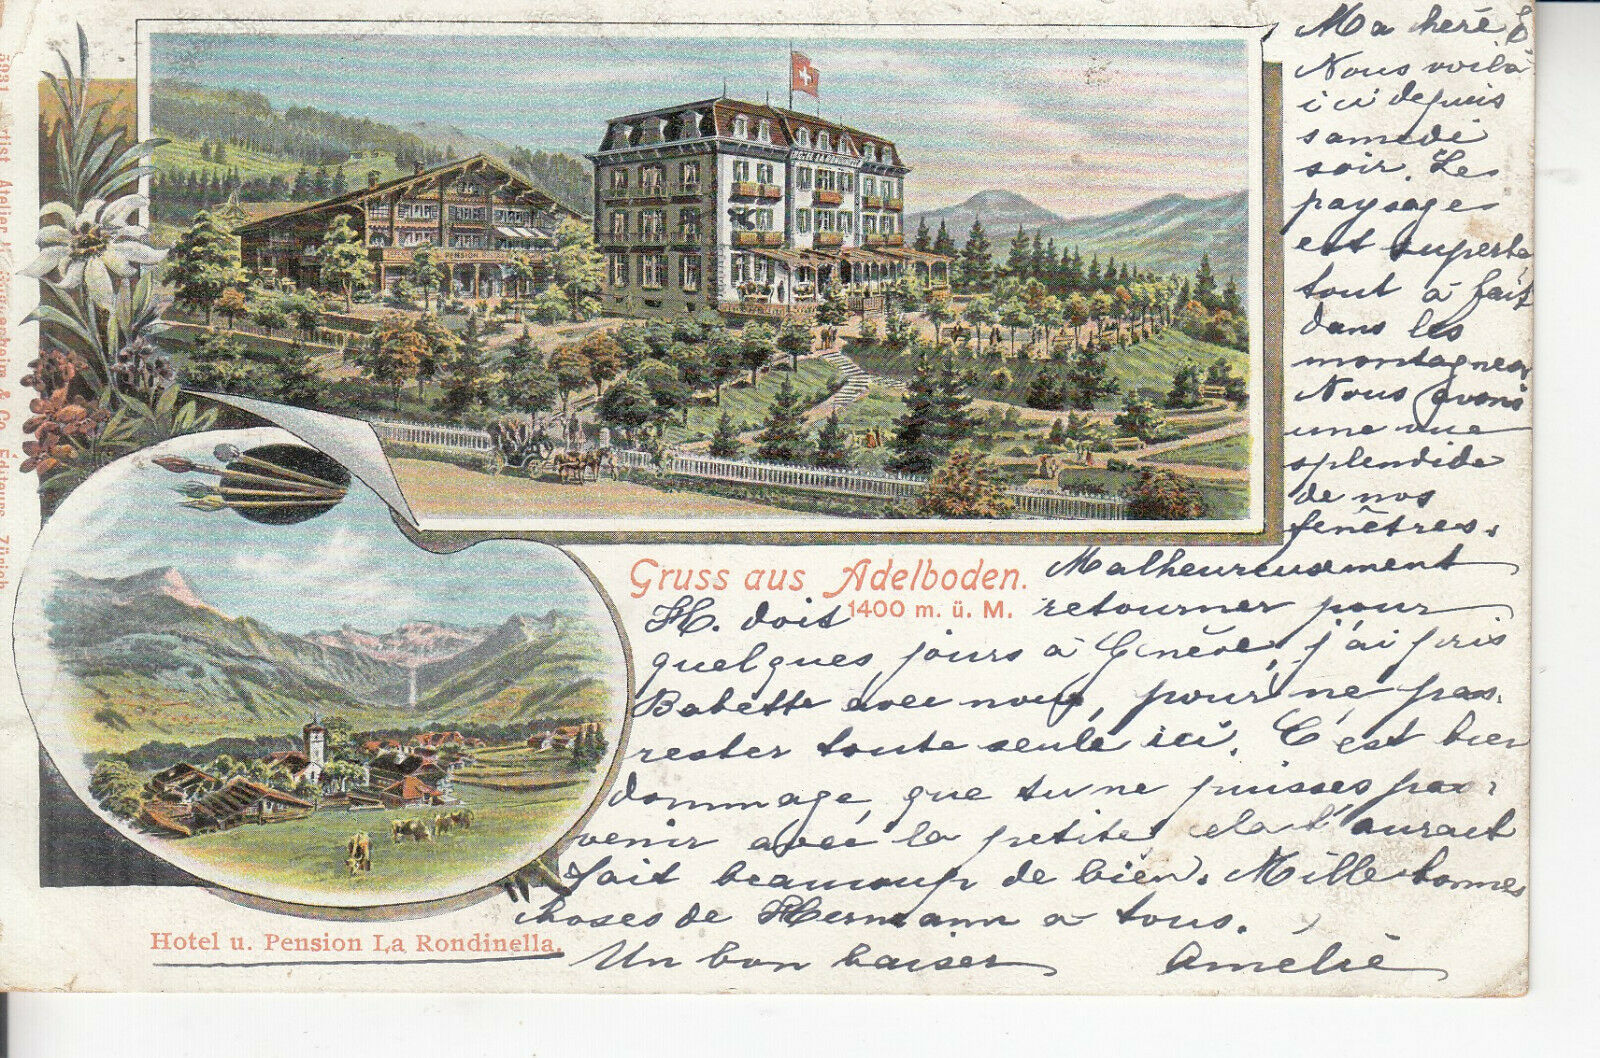 Ma chère E
Nous voilà
ici depuis
samedi
soir. Les
paysages
est superbe
tout à fait
dans les
montagnes.
Nous avons
une vue
splendide
de nos
fenêtres.
Malheureusement
H. doit retourner pour
quelques jours à Genève, j'ai pris
Babette avec nous, pour ne pas
rester toute seule ici. C'est bien
dommage, que tu ne puisses pas
venir avec la petite, cela t'aurait
fait beaucoup de bien. Mille bonnes
choses de Hermann a tous.
Un bon baiser Amélie
HOTEL LA RONDINELLA
PENSION
Gruss aus Adelboden.
1400 m. ü. M.
Hotel u. Pension La Rondinella.
5931 Artist. Atelier H. Guggenheim & Co., Éditeurs, Zürich